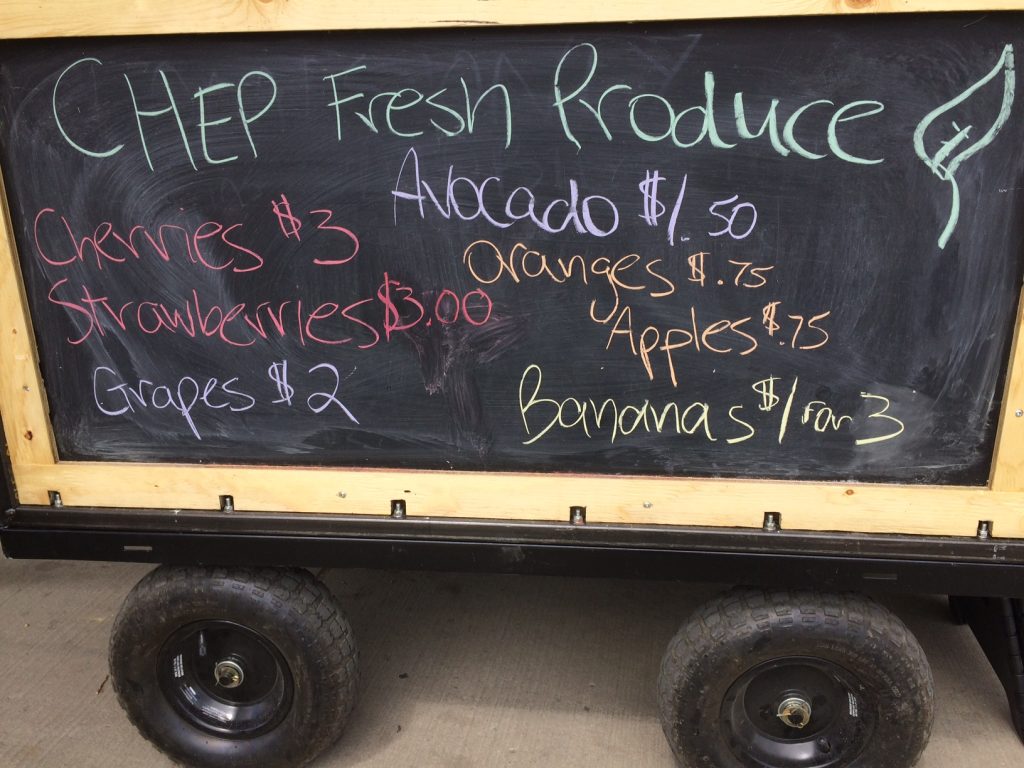 CHEP Fresh Produce
Cherries $3
Strawberries $3.00
Grapes $2
Avocado $1.50
Oranges $.75
Apples $.75
Bananas $1 for 3